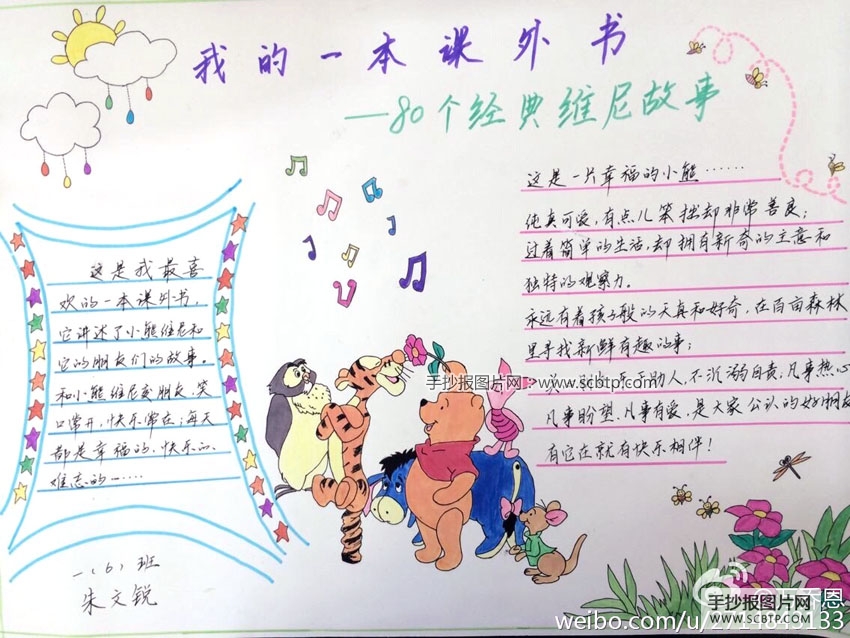 我的一本课外书
—80个经典维尼故事
这是我最喜
欢的一本课外书,
它讲述了小熊维尼和
它的朋友们的故事。
和小熊维尼交朋友,笑
口常开,快乐常在;每天
都是幸福的、快乐的、
难忘的……
一(6)班
朱文锐
这是一片幸福的小熊……
纯真可爱,有点儿笨拙却非常善良;
过着简单的生活,却拥有新奇的主意和
独特的观察力。
永远有着孩子般的天真和好奇,在百亩森林
里寻找新鲜有趣的事;
助人,不沉溺自责,凡事热心
凡事盼望、凡事有爱,是大家公认的好朋友
有它在就有快乐相伴!
手抄报图片网:www.scbtp.com
手抄报图片网
WWW.SCBTP.COM
weibo.com/u/